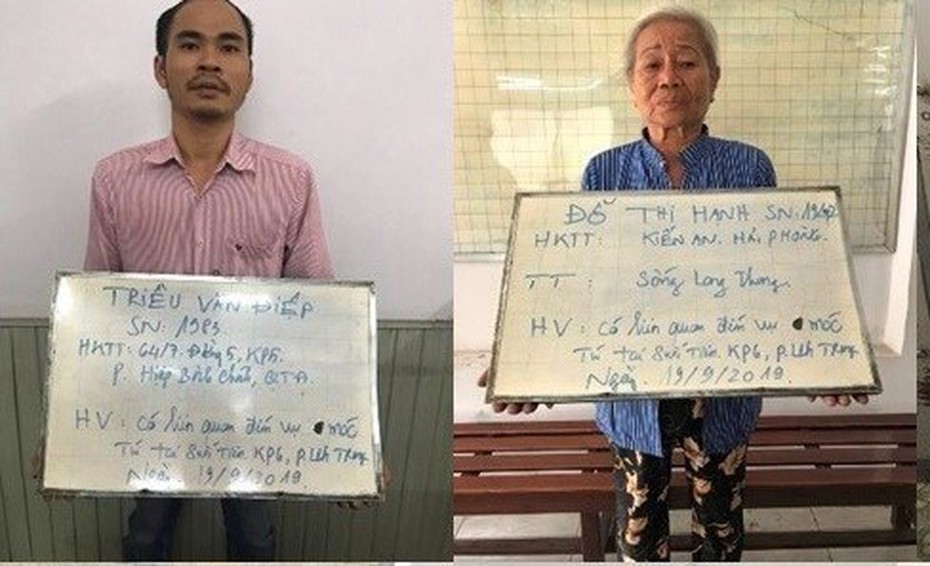 TRIỆU VĂN ĐIỆP
SN: 1983.
HKTT: 64/7. Đường 5, KP5.
P. Hiệp Bình Chánh, QTĐ.
HV: Có liên quan đến vụ móc
Túi tại Suối Tiên. KP6, P. Linh Trung
Ngày. 19/9/2019.
ĐỖ THỊ HẠNH SN: 1942
HKTT: KIẾN AN. HẢI PHÒNG.
TT: Sống Lang Thang.
HV: Có liên quan đến vụ móc
Túi tại Suối Tiên. KP6, P. Linh Trung
Ngày. 19/9/2019.